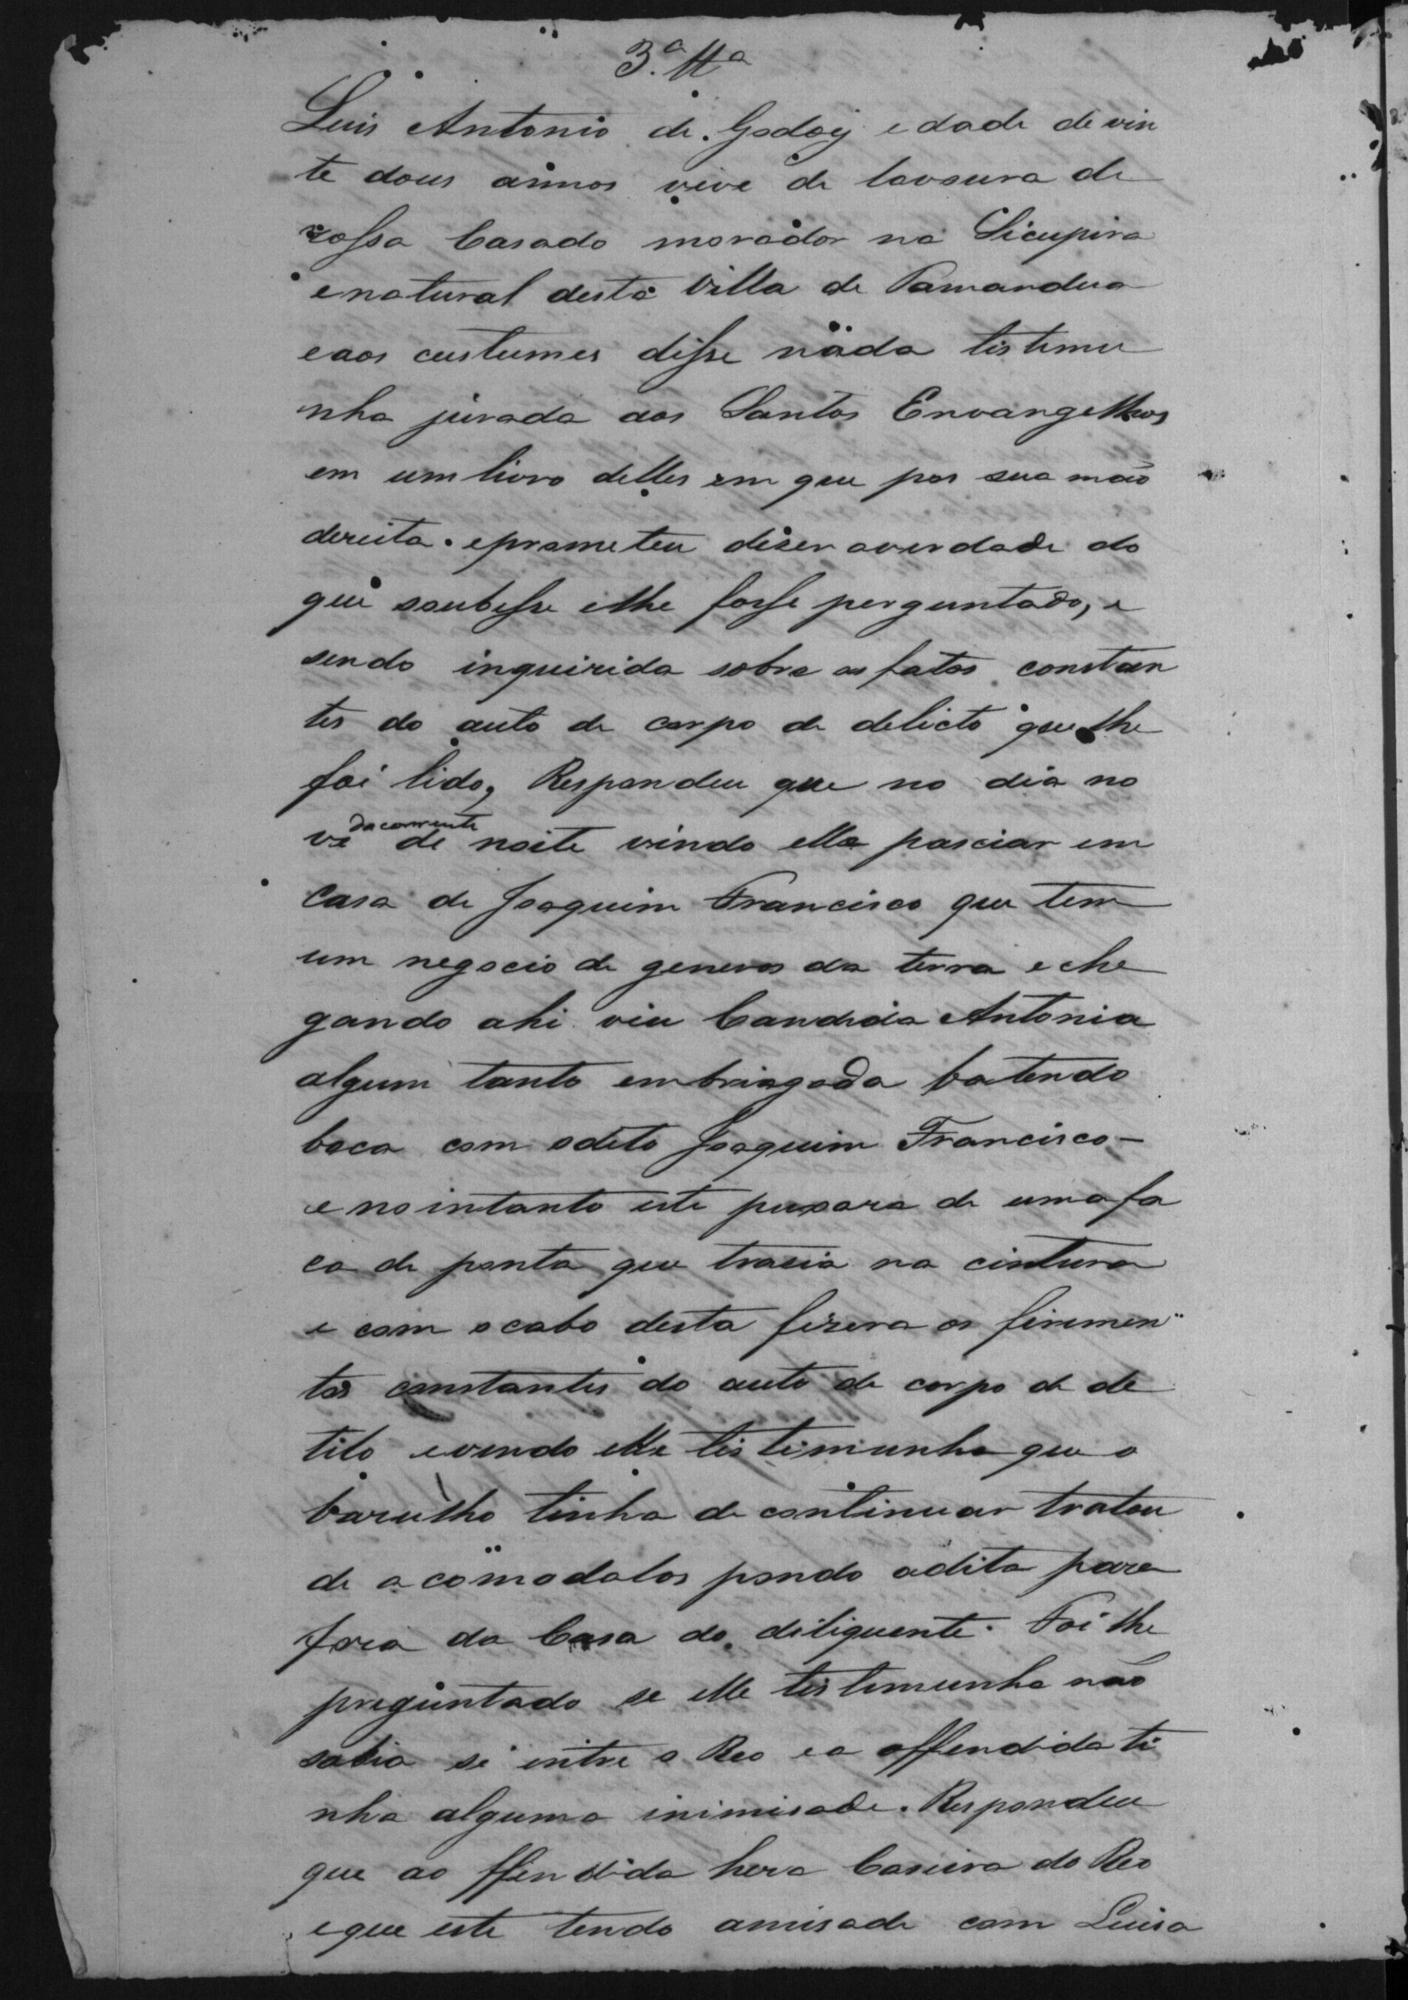 3.ª Tª
Luis Antonio de Godoy edade de vin
te dous annos vive de lavoura de
rossa Casado morador na Sicupira
enatural desta Villa de Tamandua
eaos custumes disse nada testemu
nha jurada aos Santos Envangelhos
em um livro delles em que pos sua mão
dereita. eprometeu diser averdade do
que soubesse elhe fosse perguntado, e
sendo inquirida sobre os fatos constan
tes do auto de corpo de delicto que lhe
foi lido, Respondeu que no dia no
ve do corrente de noite vindo elle pasciar em
casa de Joaquim Francisco que tem
um negocio de generos da terra eche
gando ahi viu Candida Antonia
algum tanto embriagada batendo
boca com odito Joaquim Francisco—
e nointanto este puxara de uma fa
ca de ponta que trasia na cintura
e com ocabo desta fizera os ferimen
tos constantes do auto de corpo de de
lito evendo elle testimunha que o
barulho tinha de continuar tratou
de acomodalos pondo adita para
fora da Casa do diliquente. Foi lhe
preguntado se elle testimunha não
sabia si entre o Reo ea offendida ti
nha alguma inimisade. Respondeu
que ao ffendida hera Caseira do Reo
eque este tendo amisade com Luisa